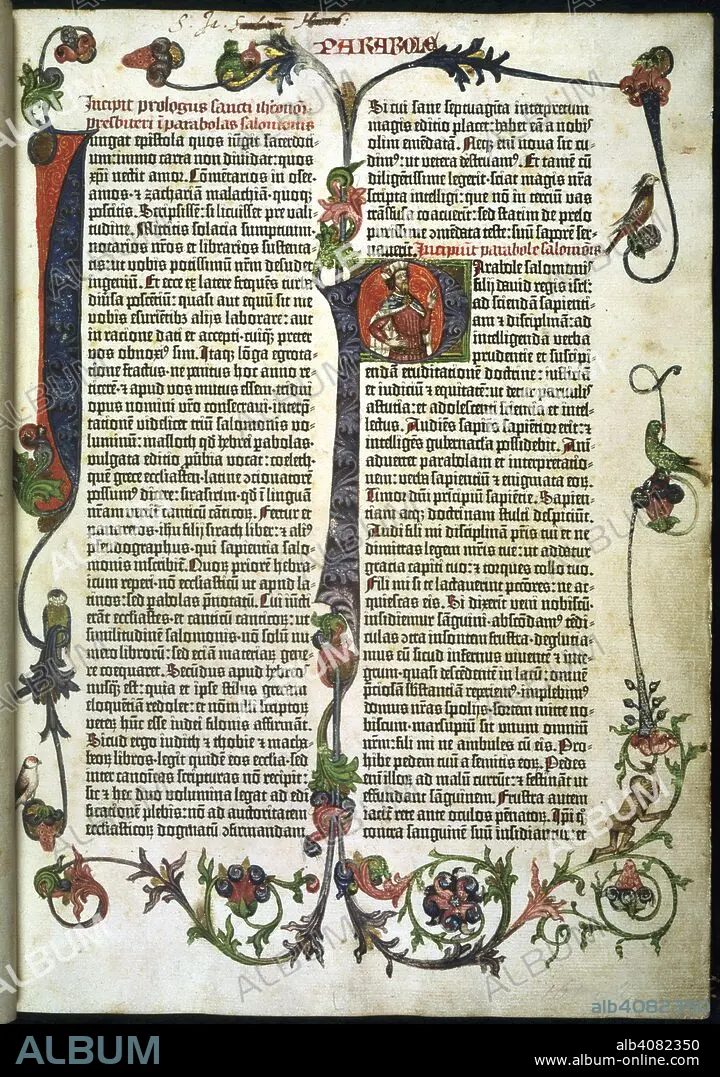 PARABOLE
Incipit prologus sancti iheronimi
presbiteri i parabolas salomonis
Iungat epistola quos iūgit sacerdoti-
um: immo carta non dividat: quos
xp̄i nectit amor. Cōmētarios in osee-
amos · ⁊ zachariam malachiā· quoq;
poscitis. Scripsissē: si licuisset pre vali-
tudine. Mittitis solacia sumptuum·
notarios nr̄os et librarios sustenta-
tis: ut vobis potissimū nr̄m desudet
ingeniū. Et ecce ex latere frequēs turba
diūsa poscētiū: quasi aut equū sit me
vobis esuriētibs alijs laborare: aut
in ratione dati et accepti· cuiq; preter
vos obnoxi9 sim. Itaq; lōga egrota-
tione fractus· ne penitus hoc anno re-
ticerē· ⁊ apud vos mutus essem· tridui
opus nomini vr̄o consecravi· interp̄-
tationē videlicet triū salomonis vo-
luminū: masloth qd̄ hebrei pabolas·
vulgata editio ꝓubia vocat: coeleth·
quē grece ecclesiasten· latine ɔcionatorē
possum9 dicere: sirasirim· qd̄ i linguā
nr̄am vertit̄ canticū cāticoꝝ. Fertur et
panaretos· ihu filij sirach liber: ⁊ ali9
pseudographus· qui sapientia salo-
monis inscribit̄. Quoꝝ priorē hebra-
icum reperi· nō ecclesiasticū ut apud la-
tinos: sed pabolas p̄notatū. Cui iūcti
erāt ecclesiastes· et canticū canticoꝝ: ut
similitudinē salomonis· nō solū nu-
mero libroruӡ: sed eciam materiaꝝ gene-
re coequaret. Secūdus apud hebreos
nusq; est: quia et ipse stilus grecam
eloquētiā redolet: et nōnulli scriptoꝝ
veterꝝ hūc esse iudei filonis affirmāt.
Sicud ergo iudith ⁊ thobie ⁊ macha-
beoꝝ libros· legit quidē eos ecclesia· sed
inter canoīcas scripturas nō recipit:
sic ⁊ hec duo volumina legat ad edi-
ficationē plebis: nō ad auctoritatem
ecclesiasticoꝝ dogmatū ɔfirmandam.
Si cui sane septuagīta interpretum
magis editio placet: habet eā a nobis
olim emēdatā. Neq; enī nova sic cu-
dim9: ut vetera destruam9. Et tamē cū
diligētissime legerit· sciat magis nr̄a
scripta intelligi: que nō in terciū vas
trāsfusa coacuerīt: sed statim de prelo
purissime ɔmēdata teste: suū saporē ser-
vaverīt. Incipiūt parabole salomōis
Parabole salomonis
filij david regis isrl̄:
ad sciendā sapienti-
am ⁊ disciplinā: ad
intelligendā verba
prudentie et suscipi-
endā eruditationē doctrine: iusticiā
et iudiciū ⁊ equitatē: ut detur parvulis
astutia: et adolescenti scientia et intel-
lectus. Audiēs sapiēs sapiētior erit: ⁊
intelligēs gubernacla possidebit. Ani-
advertet parabolam et interpretatio-
nem: verba sapientiū ⁊ enigmata eoꝝ.
Timor dn̄i prīcipiū sapiētie. Sapien-
tiam atq; doctrinam stulti despiciūt.
Audi fili mi disciplinā pr̄is tui et ne
dimittas legem mr̄is tue: ut addatur
gracia capiti tuo: ⁊ torques collo tuo.
Fili mi si te lactaverint pctōres: ne ac-
quiescas eis. Si dixerīt veni nobiscū·
insidiemur sāguini· abscōdam9 tēdi-
culas ɔtra insontem frustra· deglutia-
mus eū sicud infernus viventē ⁊ inte-
grum· quasi descēdentē in lacū: omnē
p̄ciosā sb̄stantiā reperiem9· implebim9
domus nr̄as spolijs· sortem mitte no-
biscum· marsupiū sit unum omniū
nr̄m: fili mi ne ambules cū eis. Pro-
hibe pedem tuū a semitis eoꝝ. Pedes
enī illoꝝ ad malū currūt: ⁊ festināt ut
effundant sāguinem. Frustra autem
iacit̄ rete ante oculos pēnatoꝝ. Ipi q;
contra sanguinē suū insidiantur: et
ALBUM
alb4082350
ALBUM
alb4082350
www.album-online.com